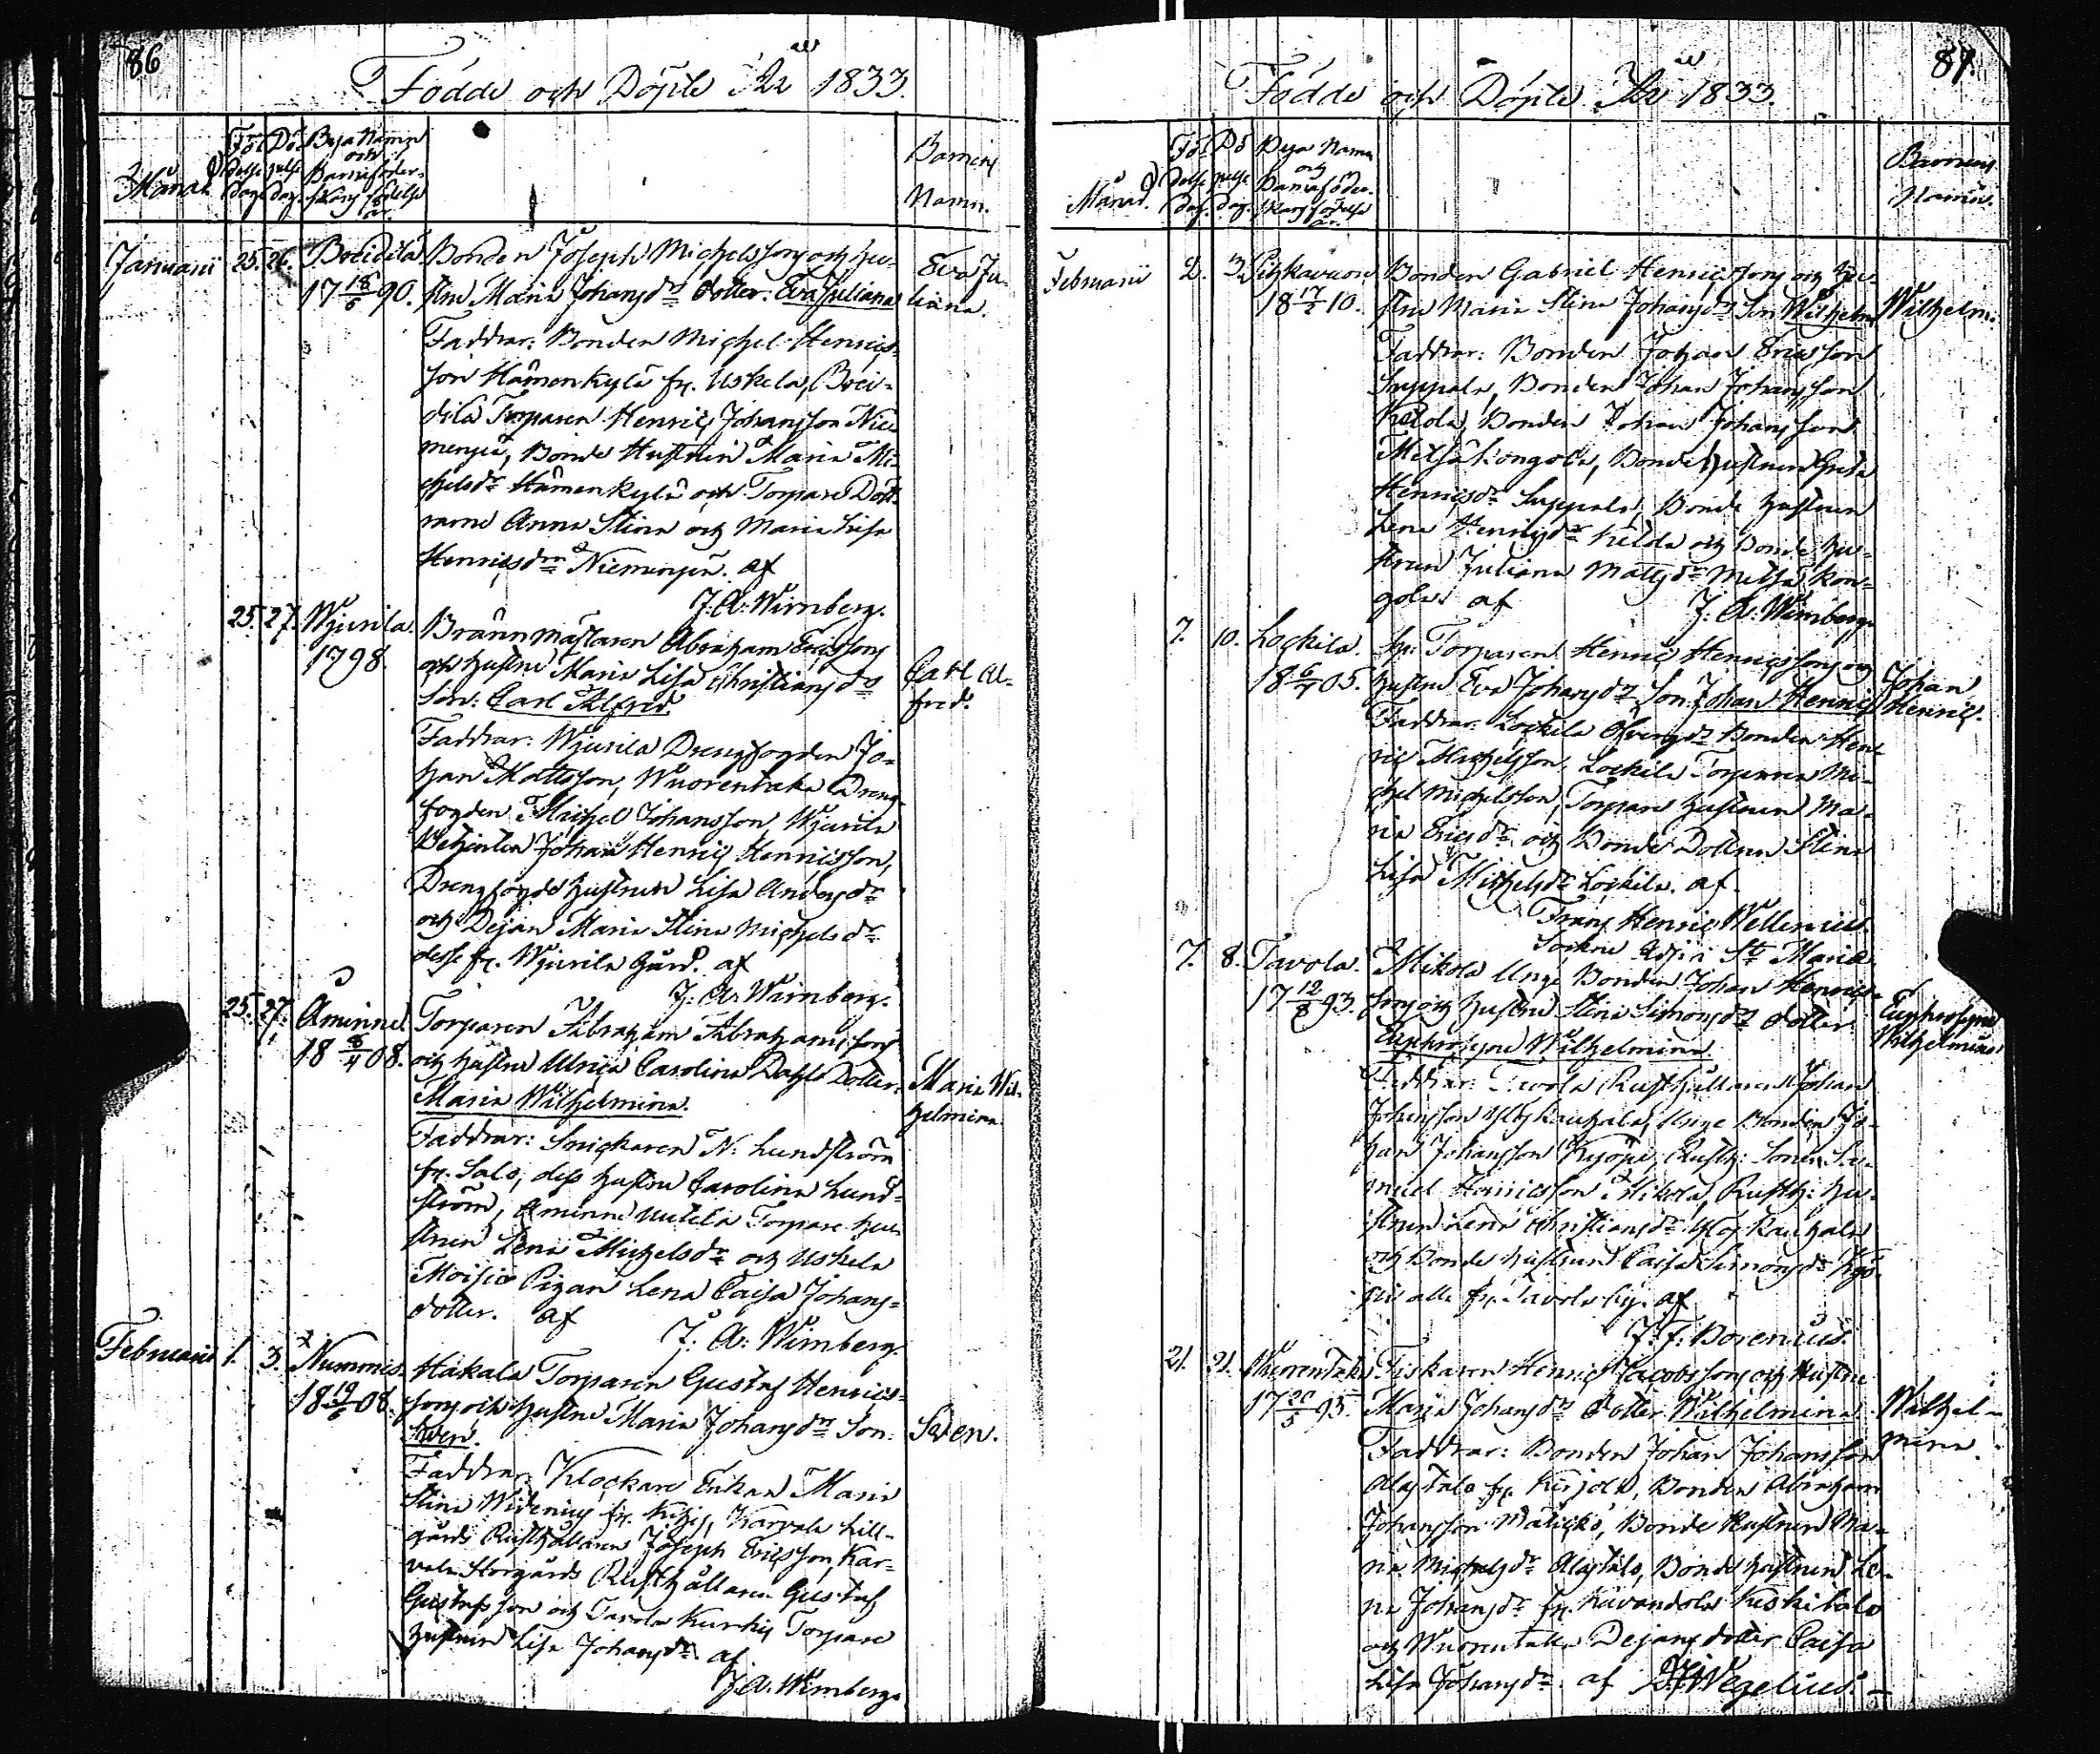 86
Födde och Döpte År 1833.
Månad
Fö-
delse
dag.
Dö-
pelse
dag.
Bya Namn
och
Barnaföder-
skans födelse
år.
Barnens
Namn.
Januarii 25. 26. Breidilä.
17 18/5 90.
Bonden Joseph Michelssons och hu-
strus Maria Johansdrs dotter: Eva Juliana
Eva Ju-
liana.
Faddrar: Bonden Michel Henrics-
son Hämenkylä fr. Uskela, Brei-
dilä Torparen Henric Johansson Nie-
menpä, Bonde Hustrun Maria Mi-
chelsdr Hämenkylä och Torpare Dött-
rarne Anna Stina och Maria Lisa
Henricsdrr Niemenpä. af
J. A. Wirnberg.
25. 27. Wjurila.
1798.
Brännmästaren Abraham Ericssons
och hustrus Maria Lisa Christiansdrs
Son: Carl Alfred.
Carl Al-
fred.
Faddrar: Wjurila Drengfogden Jo-
han Mattsson, Wuorentaka Dreng-
fogden Michel Johansson Wjurila
Betjenten Johan Henric Henricsson,
Drengfogds hustrun Lisa Andersdr
och Dejan Maria Stina Michelsdr
desse fr. Wjurila Gård. af
J. A. Wirnberg.
25. 27. Åminne.
18 8/4 08.
Torparen Abraham Abrahamssons
och hustrus Ulrica Carolina Dahls Dotter:
Maria Wilhelmina.
Maria Wil-
helmina
Faddrar: Snickaren N. Lundström
fr. Salo, dess hustru Carolina Lund-
ström, Åminne Torpare hu-
strun Lena Michelsdr och Uskela
Moisio Pigan Lena Caisa Johans-
dotter. af
J. A. Wirnberg.
Februarii 1. 3. Nummis.
18 19/6 08.
Hakala Torparen Gustaf Henrics-
sons och hustrus Maria Johansdrs Son:
Sven.
Sven.
Faddrar: Klockare Enkan Maria
Stina Widenius fr. Kihis, Karvela Lill-
gårds Rusthållaren Joseph Ericsson, Kar-
vela Storgårds Rusthållaren Gustaf
Gustafsson och Tavola Kurki Torpare
hustrun Lisa Johansdr. af
J. A. Wirnberg.
87.
Födde och Döpte År 1833.
Månad.
Fö-
delse
dag.
Dö-
pelse
dag.
Bya Namn
och
Barnaföder-
skans födelse
år.
Barnens
Namn.
Februarii 2. 3.
18 17/2 10.
Bonden Gabriel Henricssons och hu-
strus Maria Stina Johansdrs Son Wilhelm
Wilhelm.
Faddrar: Bonden Johan Ericsson
Suppala, Bonden Johan Johansson
Ketola, Bonden Johan Johansson
Metsäkongola, Bonde Hustrun Greta
Henricsdr Suppala, Bonde hustrun
Lena Henricsdr Ketola och Bonde hu-
strun Juliana Mattsdr Metsäkon-
gola af
J. A. Wirnberg
7. 10. Lockila.
18 6/4 05.
Sp. Torparen Henric Henricssons och
hustrus Eva Johansdrs Son Johan Henric
Johan
Henric.
Faddrar: Lockila Bonden Hen-
ric Michelsson, Lockila Torparen Mi-
chel Michelsson, Torpare hustrun Ma-
ria Ericsdr och Bonde Dottren Stina
Lisa Michelsdr Lockila. af
Frans Henric Wellenius.
Sockne Adj. i St. Marie.
7. 8. Tavola.
17 12/8 93.
Mikola Unge Bonden Johan Henrics-
sons och hustrus Stina Simonsdrs dotter
Euphrosyne Wilhelmina.
Euphrosyne
Wilhelmina
Faddrar: Tavola Rusthållaren Johan
Johansson Rauhala, Unge Bonden Jo-
han Johansson Kyöpi, Rusth: Sonen Sa-
muel Henricsson Mikola, Rusth: hu-
strun Lena Christiansdr Rauhala
och Bonde hustrun Caisa Simonsdr Kyö-
pi alla fr. Tavola by. af
J. F. Borenius.
21. 21. Wuorentaka
17 20/5 93.
Fiskaren Henric Jacobssons och Hustrus
Maria Johansdrs dotter Wilhelmina.
Wilhel-
mina.
Faddrar: Bonden Johan Johansson
Alastalo fr. Kirjola, Bonden Abraham
Johansson Mälickö, Bonde Hustrun Ma-
ria Michelsdr Alastalo, Bonde hustrun Le-
na Johansdr fr. Kavandola Keskitalo
och Wuorentaka Dejans dotter Caisa
Lisa Johansdr. af Wegelius.